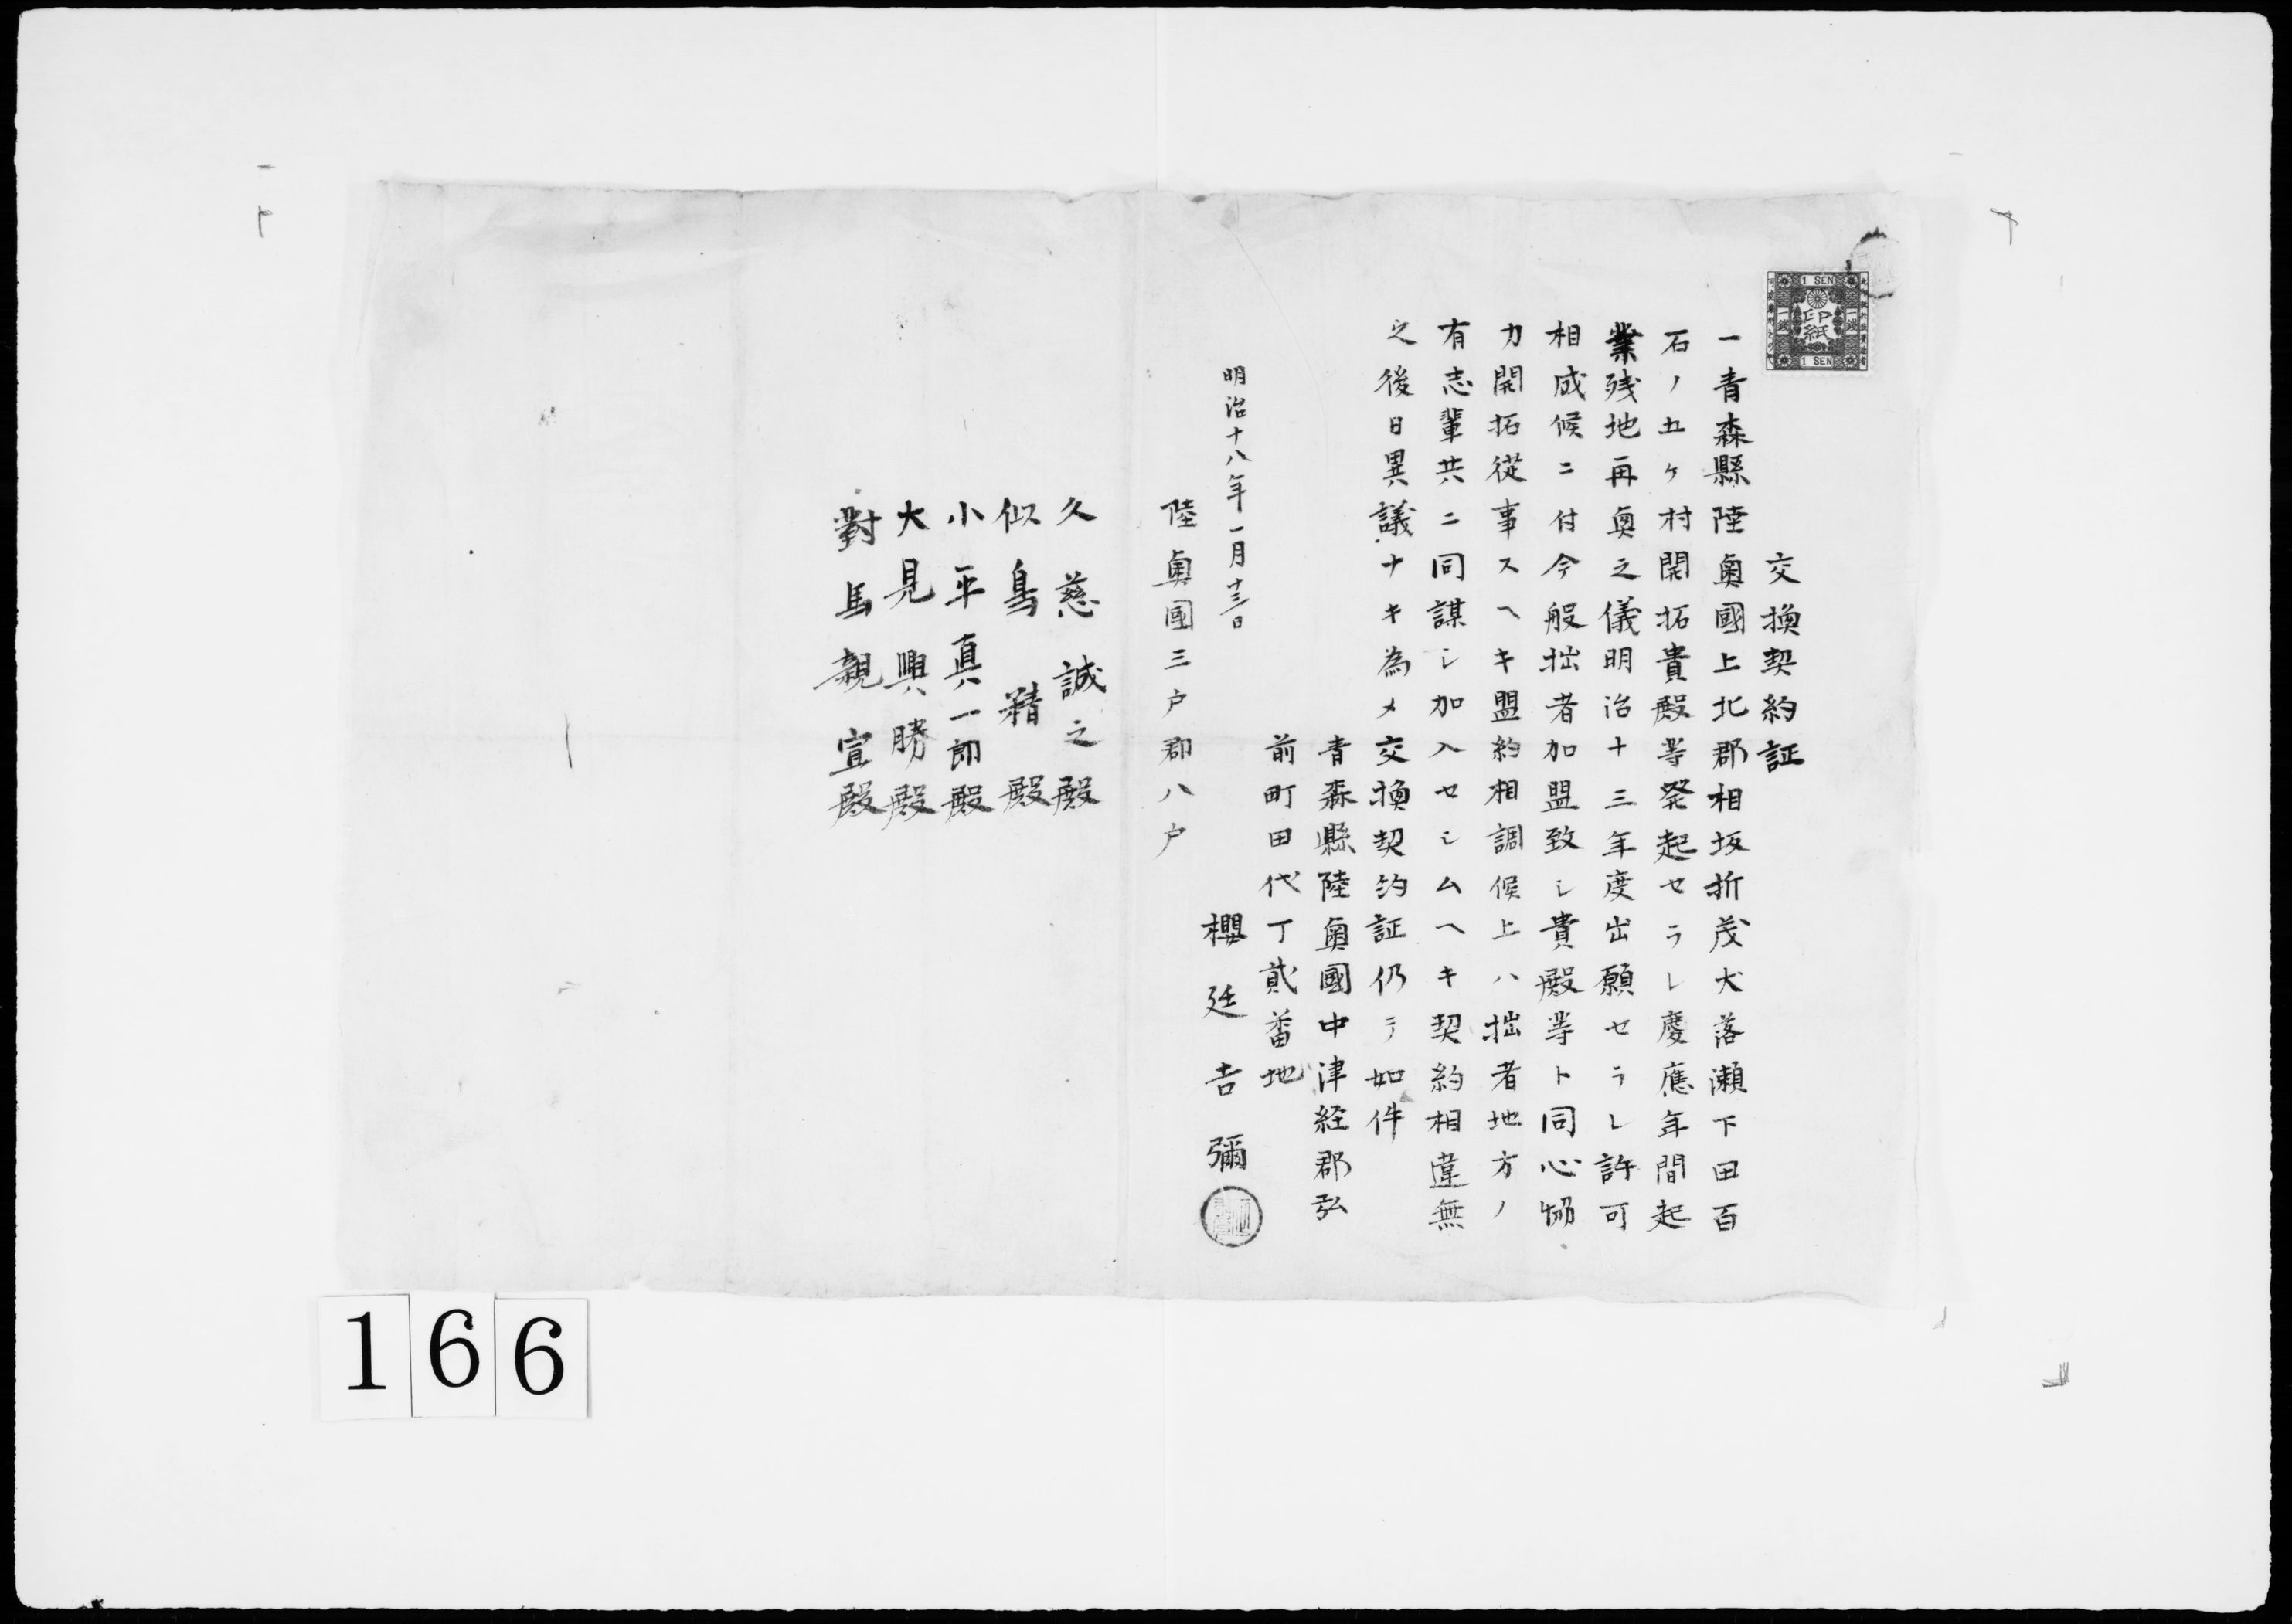 1 SEN
一銭
印紙
一銭
1 SEN
交換契約証
一青森縣陸奥國上北郡相坂折茂犬落瀬下田百
石ノ五ヶ村開拓貴殿等発起セラレ慶應年間起
業残地再奥之儀明治十三年度出願セラレ許可
相成候ニ付今般拙者加盟致シ貴殿等ト同心協
力開拓従事スヘキ盟約相調候上ハ拙者地方ノ
有志輩共ニ同謀シ加入セシムヘキ契約相違無
之後日異議ナキ為メ交換契約証仍テ如件
青森縣陸奥國中津経郡弘
前町田代丁貳番地
明治十八年一月十三日
櫻廷吉彌
陸奥國三戸郡八戸
久慈誠之殿
似鳥精殿
小平真一郎殿
大見興勝殿
對馬親宣殿
166